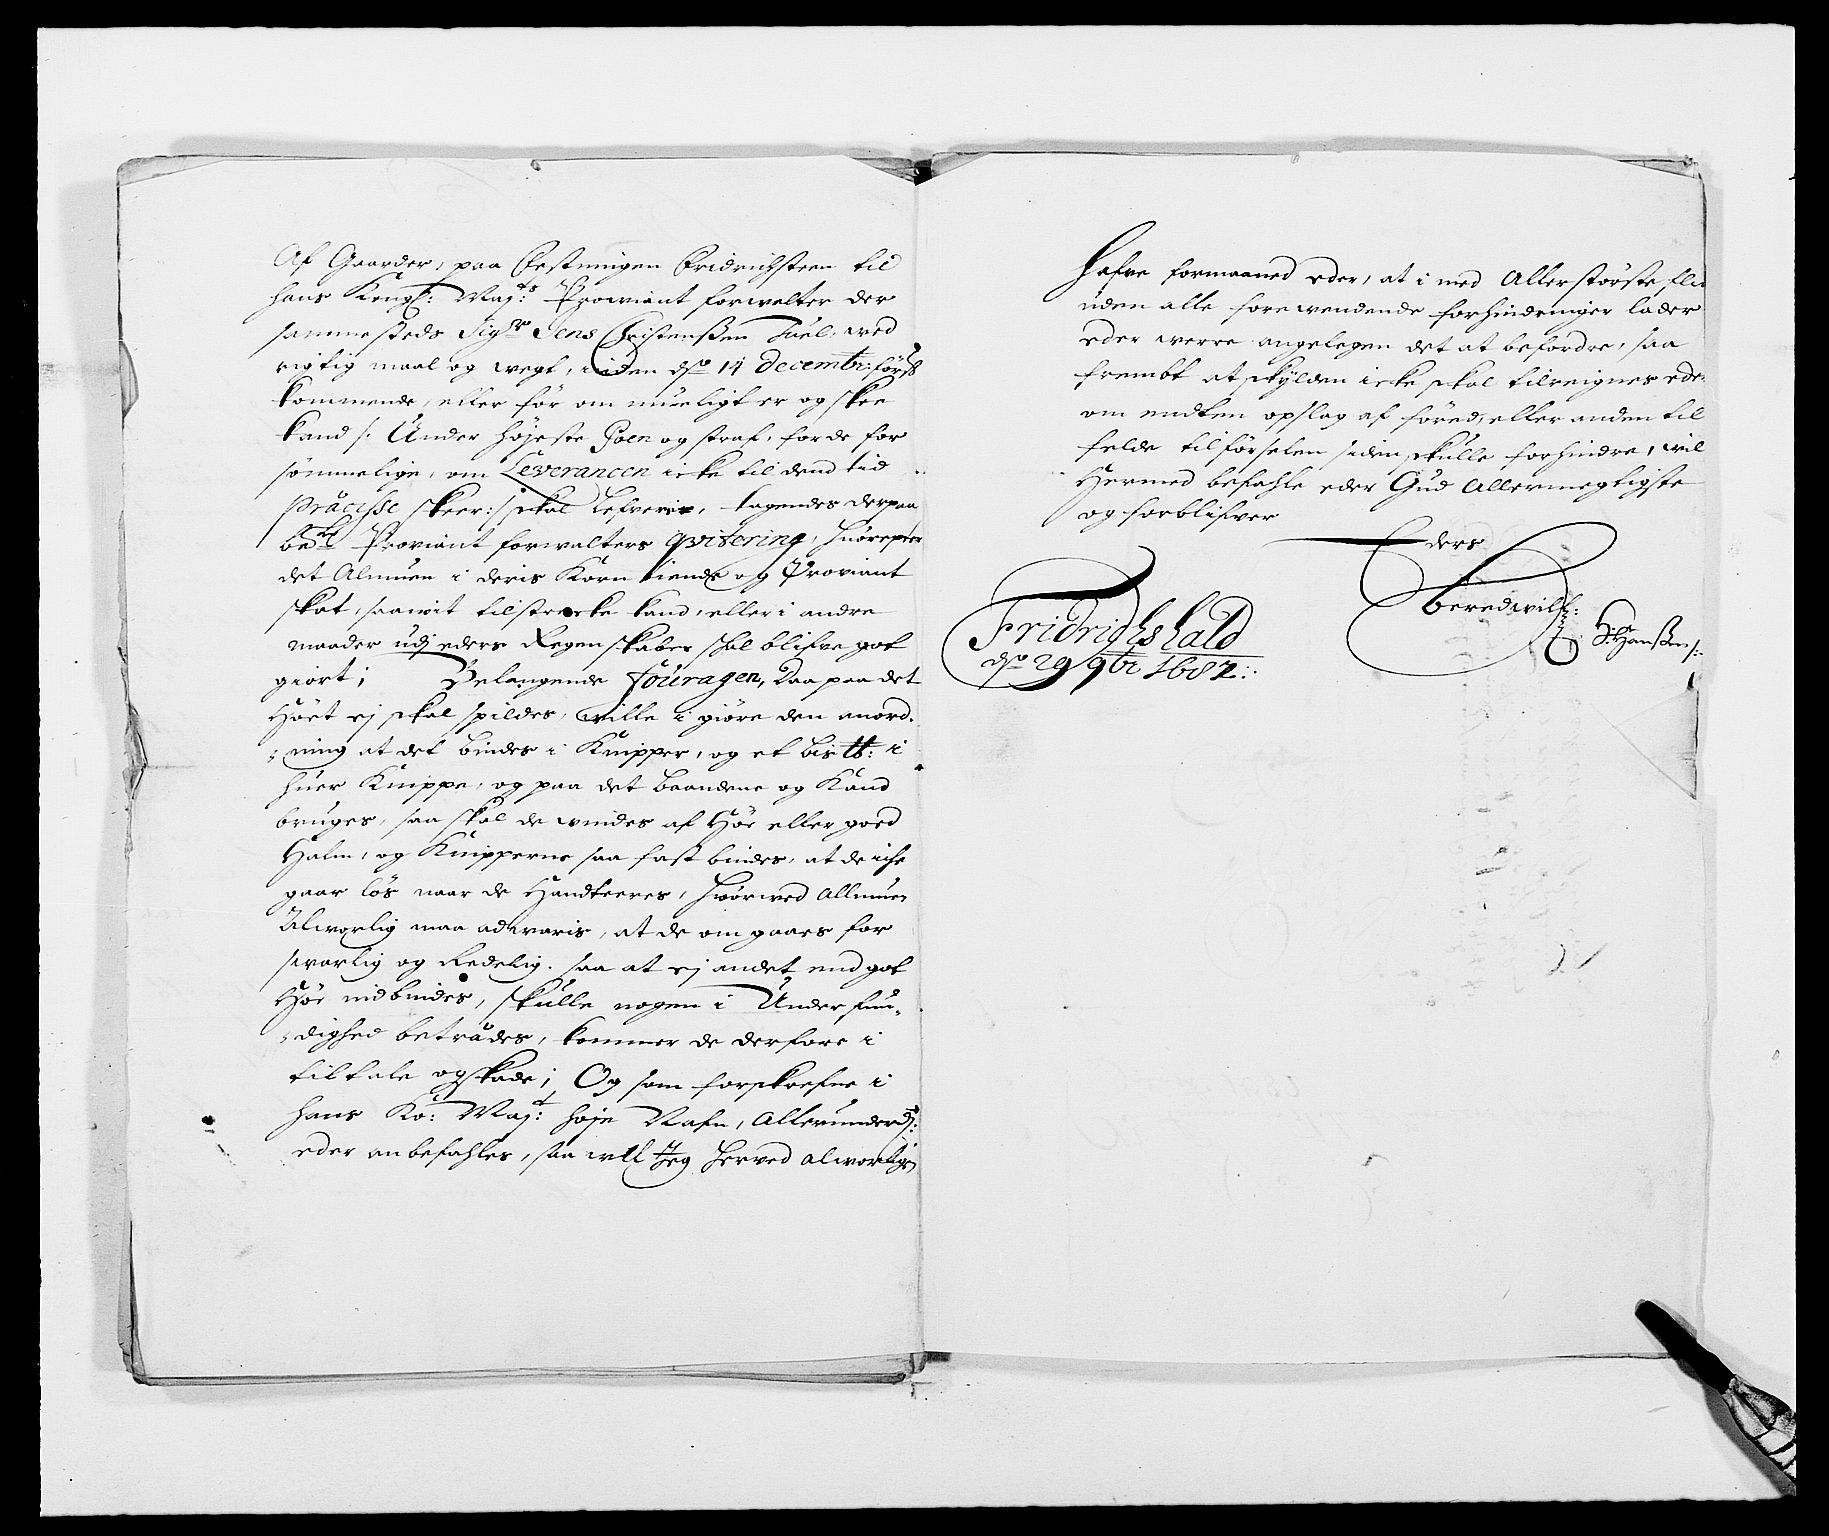 Af Gaarder, paa Festningen Fridrichsteen til
hans Kongl: Maj:ts Proviant forvalter der
sammesteds Sigr Jens Christenßen Juel, med
rigtig maal og vegt, inden dso 14 Decembr: först
kommende, eller för om mueligt er og skee
kand /: Under höjeste Poen og straf, for de for
sömmelige, om Leverancen icke til dend tid
præcisse skeer :/ skal lefveris, tagendes derpaa
bete Proviant forvalters qvitering, huorefter
det Almuen i deris Korn tiende og Proviant
skat, saavit tilstrecke kand, eller i andre
maader udj eders Regenskaber skal blifve got
giort; Belangende Fouragen, Daa paa det
Höet ej skal spildes, ville i giöre den anord-
ning at det bindes i Knipper, og et bis ℔: i
huer Knippe, og paa det baandene og Kand
bruges, saa skal de vindes af Höe eller goed
Halm, og Knipperne saa fast bindes, at de icke
gaar lös naar de Handteeres, hvorved Allmuen
Alvorlig maa advaris, at de omgaaes for
svarlig og Redelig. saa at ej andet end got
Höe indbindes, skulle nogen i Underfun-
dighed betrædes, kommer de derfore i
tiltale og skade; Og som forskrefne i
hans Ko: Maj:t höje Nafn, Allerunderd:
eder anbefahles, saa vill Jeg herved alvorlig
hafve formaaned eder, at i med Allerstörste flid
uden alle forevendende forhindringer lader
eder verre angelegen det at befordre, saa
frembt at skylden icke skal tilreignes eder
om endten opslag af föred, eller anden til
felde tilförselen siden skulle forhindre, vil
Hermed befahle eder Gud Allermegtigste
og forblifver
Eders
Beredvill:
Fridrichshald
dso 29 9br 1687:
H: Hanßen